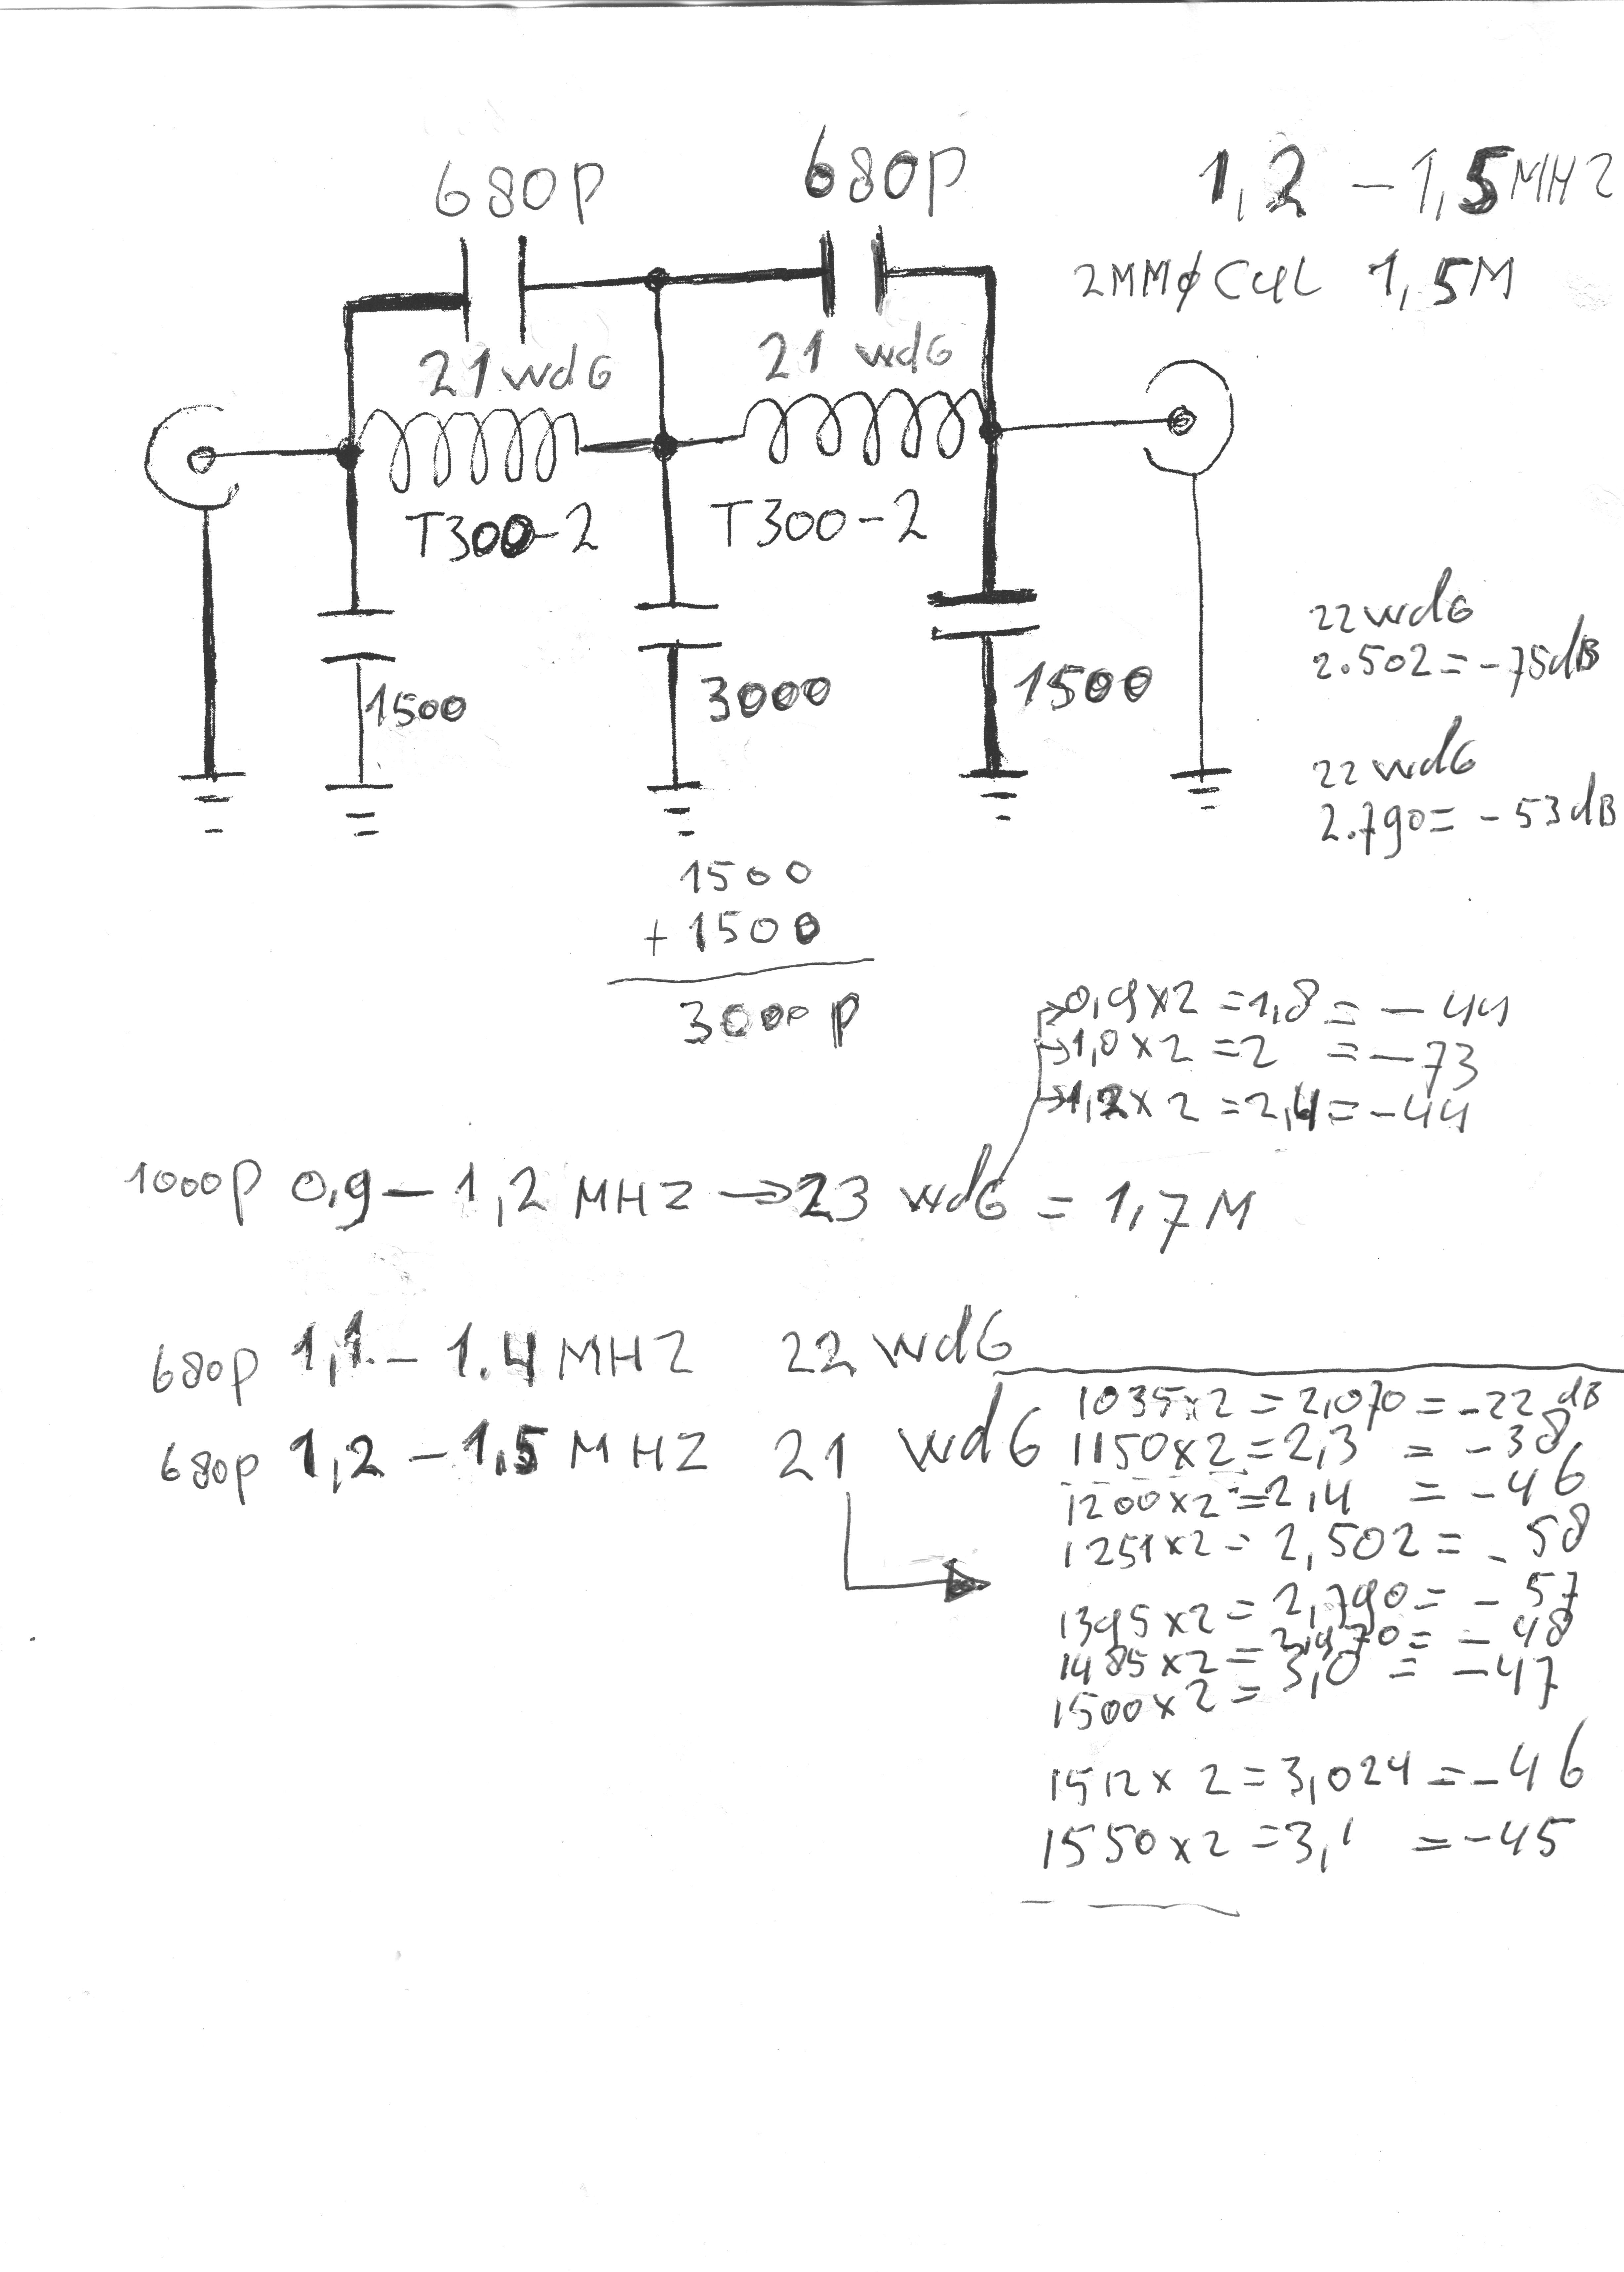 680p
680p
1,2 – 1,5 MHZ
2MMø CuL 1,5M
21 wdG
21 wdG
T300-2
T300-2
1500
3000
1500
22 wdG
2.502 = -75dB
22 wdG
2.790 = -53dB
1500
+ 1500
3000 p
0,9 x 2 = 1,8 = - 44
1,0 x 2 = 2 = - 73
1,2 x 2 = 2,4 = - 44
1000p 0,9 – 1,2 MHZ → 23 wdG = 1,7M
680p 1,1 – 1.4 MHZ 22 wdG
680p 1,2 – 1.5 MHZ 21 wdG
1035 x 2 = 2,070 = -22 dB
1150 x 2 = 2,3 = - 38
1200 x 2 = 2,4 = - 46
1251 x 2 = 2,502 = - 58
1395 x 2 = 2,790 = - 57
1485 x 2 = 2,970 = - 48
1500 x 2 = 3,0 = - 47
1512 x 2 = 3,024 = - 46
1550 x 2 = 3,1 = - 45